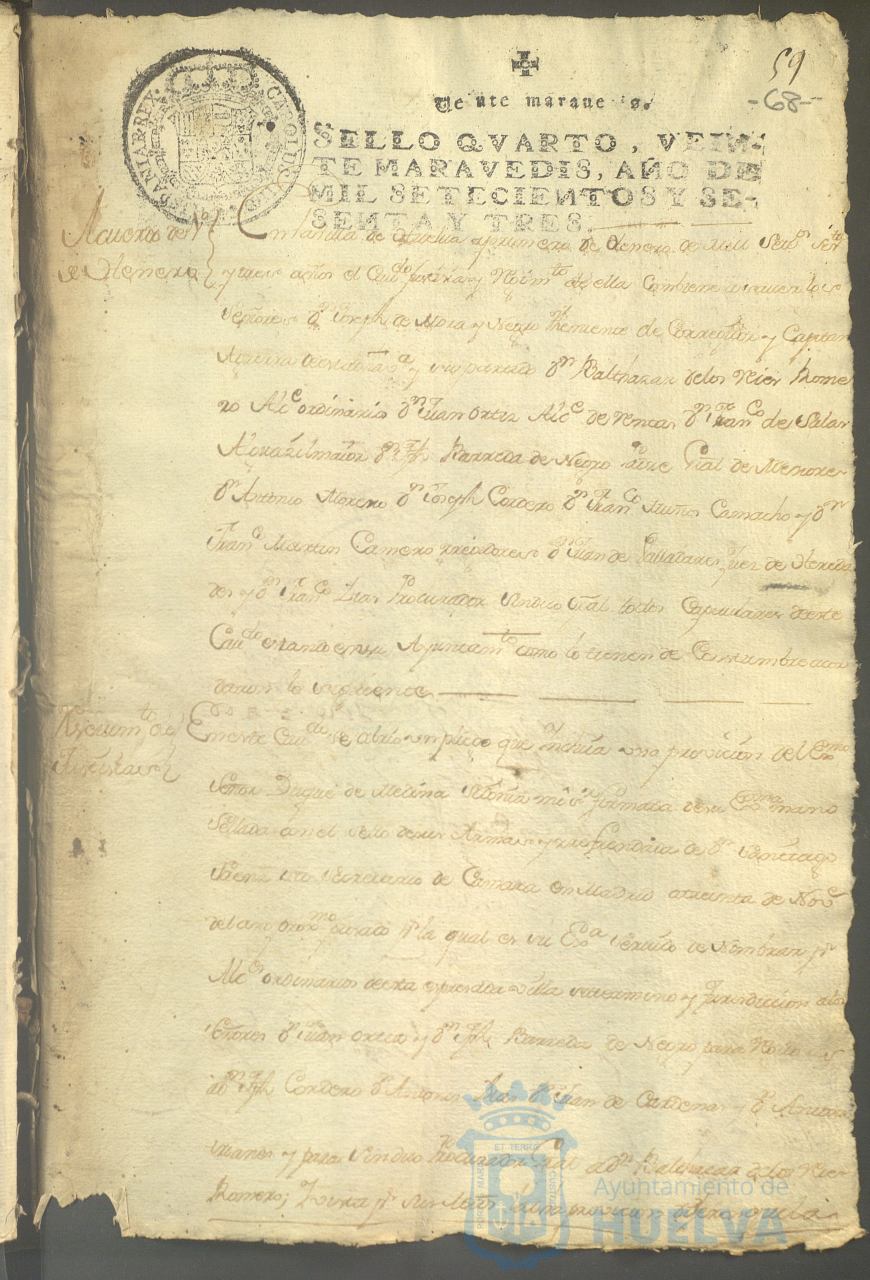 59
-68-
Veinte maravedis.
SELLO QVARTO, VEIN-
TE MARAVEDIS, AÑO DE
MIL SETECIENTOS Y SE-
SENTA Y TRES.
CAROLUS
Acuerdo de 1º
de Henero
En la villa de Huelva a primero de Henero de Mill Setºs
y tres años el Cavdo Justicia y Rexim.to de ella combiene a saver los
Señores Dn Joseph de Mora y Negro theniente de Corregidor y Capitan
a Guerra de esta y su partido Dn Balthazar de los Reies Rome
ro Alce ordinario Dn Juan Ortiz Alce de Dn Franco de Salas
Alguazil maior Dn Jph Barreda de Negro Padre Gral de Menores
Dn Antonio Moreno Dn Joseph Cordero Dn Franco Muños Camacho y Dn
Franco Martin Camero rexidores Dn Juan de Valladares Juez de Hereda
des y Dn Franco Dias Procurador Sindico Gral todos Capitulares de este
Cavdo estando en su Ayuntamto como lo tienen de Costumbre acor
daron lo siguiente
Rexevimto de
Justicias
En este Cavdo se abrio un pliego que Yncluia una provicion del Exmo
Señor Duque de Medina Sidonia mi Sr firmada de su Exma mano
Sellada con el sello de sus Armas y rrefrendada de Dn
Saenz su Secretario de Camara en Madrid a treinta de Nove
del año proxmo pasado Pr la qual es su Exa Servido de Nombrar pr
Alces ordinarios de esta expresada villa su termino y Jurisdiccion a los
Señores Dn Juan Ortiz y Dn Jph Barreda de Negro para
a Dn Jph Cordero Dn Antonio Dn Juan de Cardenas y Dn Antonio
y para Sindico Procurador Gral a Dn Balthazar de los Reies
Romero; Y vista pr Sus Mrds dicha provicion
Ayuntamiento de
HUELVA